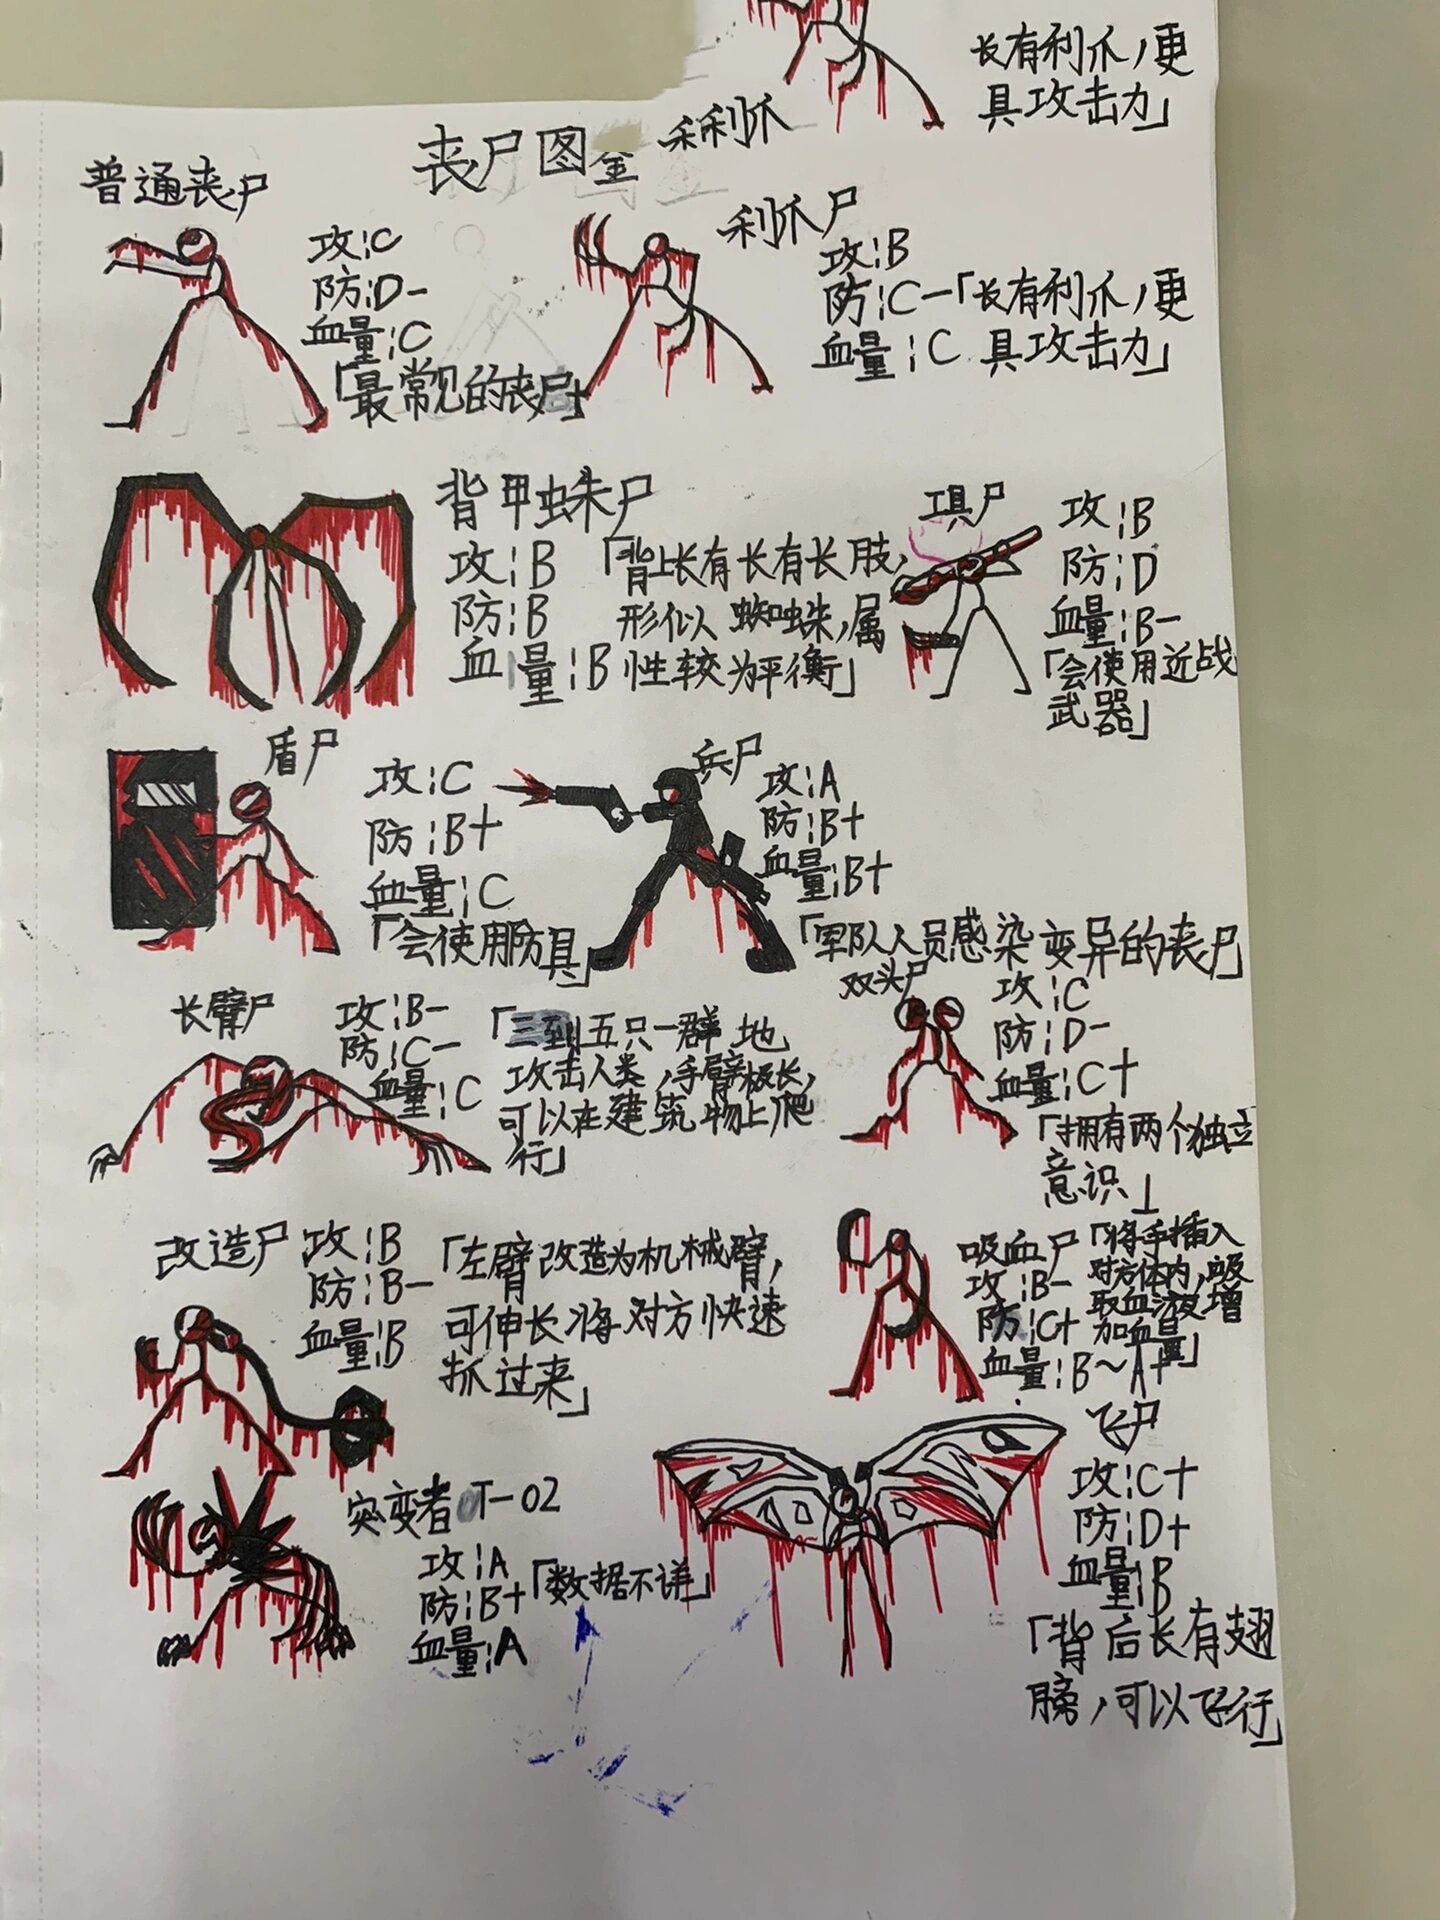 长有利爪,更
具攻击力」
利爪
丧尸图鉴
普通丧尸
攻:C
防:D-
血量:C
「最常见的丧尸」
利爪尸
攻:B
防:C-
血量:C
「长有利爪,更
具攻击力」
背甲蛛尸
攻:B
防:B
血量:B
「背上长有长有长肢,
形似蜘蛛,属
性较为平衡」
工具尸
攻:B
防:D
血量:B-
「会使用近战
武器」
盾尸
攻:C
防:B+
血量:C
「会使用防具」
兵尸
攻:A
防:B+
血量:B+
「军队人员感染变异的丧尸」
长臂尸
攻:B-
防:C-
血量:C
「三到五只一群地
攻击人类,手臂极长,
可以在建筑物上爬
行」
双头尸
攻:C
防:D-
血量:C+
「拥有两个独立
意识」
改造尸
攻:B
防:B-
血量:B
「左臂改造为机械臂,
可伸长将对方快速
抓过来」
吸血尸
攻:B-
防:C+
血量:B~A+
「将手插入
对方体内,吸
取血液增
加血量」
突变者T-02
攻:A
防:B+
血量:A
「数据不详」
飞尸
攻:C+
防:D+
血量:B
「背后长有翅
膀,可以飞行」